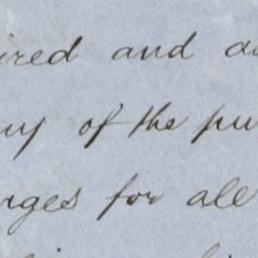 ired and a
ny of the pu
rges for all